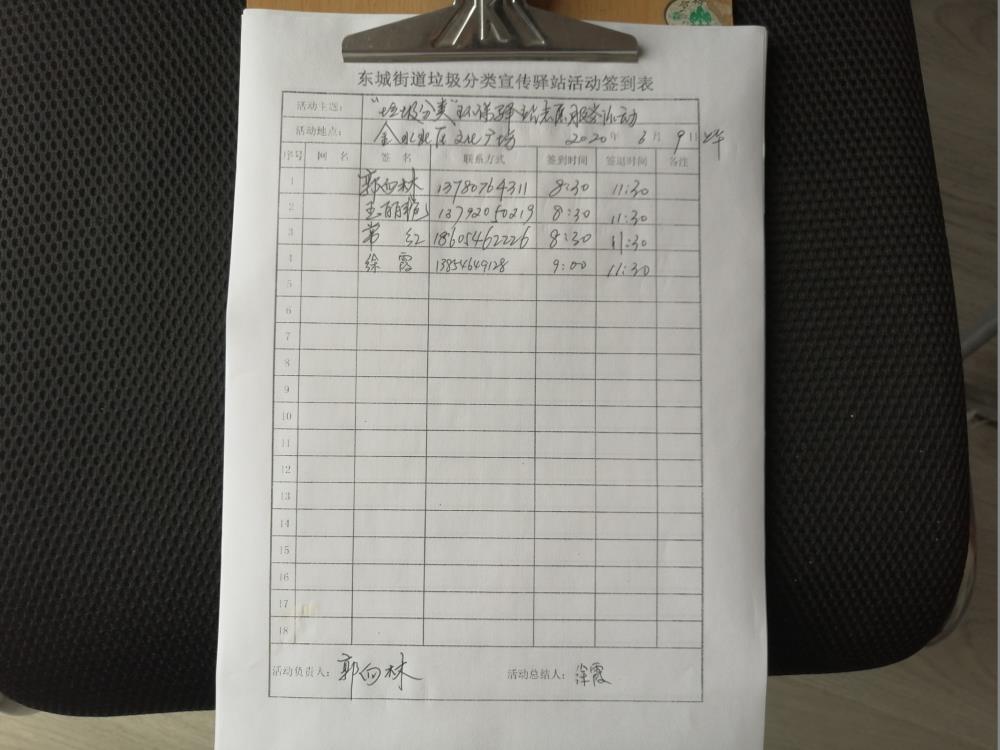 东城街道垃圾分类宣传驿站活动签到表
活动主题: "垃圾分类"环保驿站志愿服务活动
活动地点: 金水北区文化广场 2020年 6月 9日 上午
序号 网 名 签 名 联系方式 签到时间 签退时间 备注
1 郭向林 13780764311 8:30 11:30
2 王丽艳 13792050219 8:30 11:30
3 常 红 18605462226 8:30 11:30
4 徐 霞 13854649128 9:00 11:30
5
6
7
8
9
10
11
12
13
14
15
16
17
18
活动负责人: 郭向林 活动总结人: 徐霞